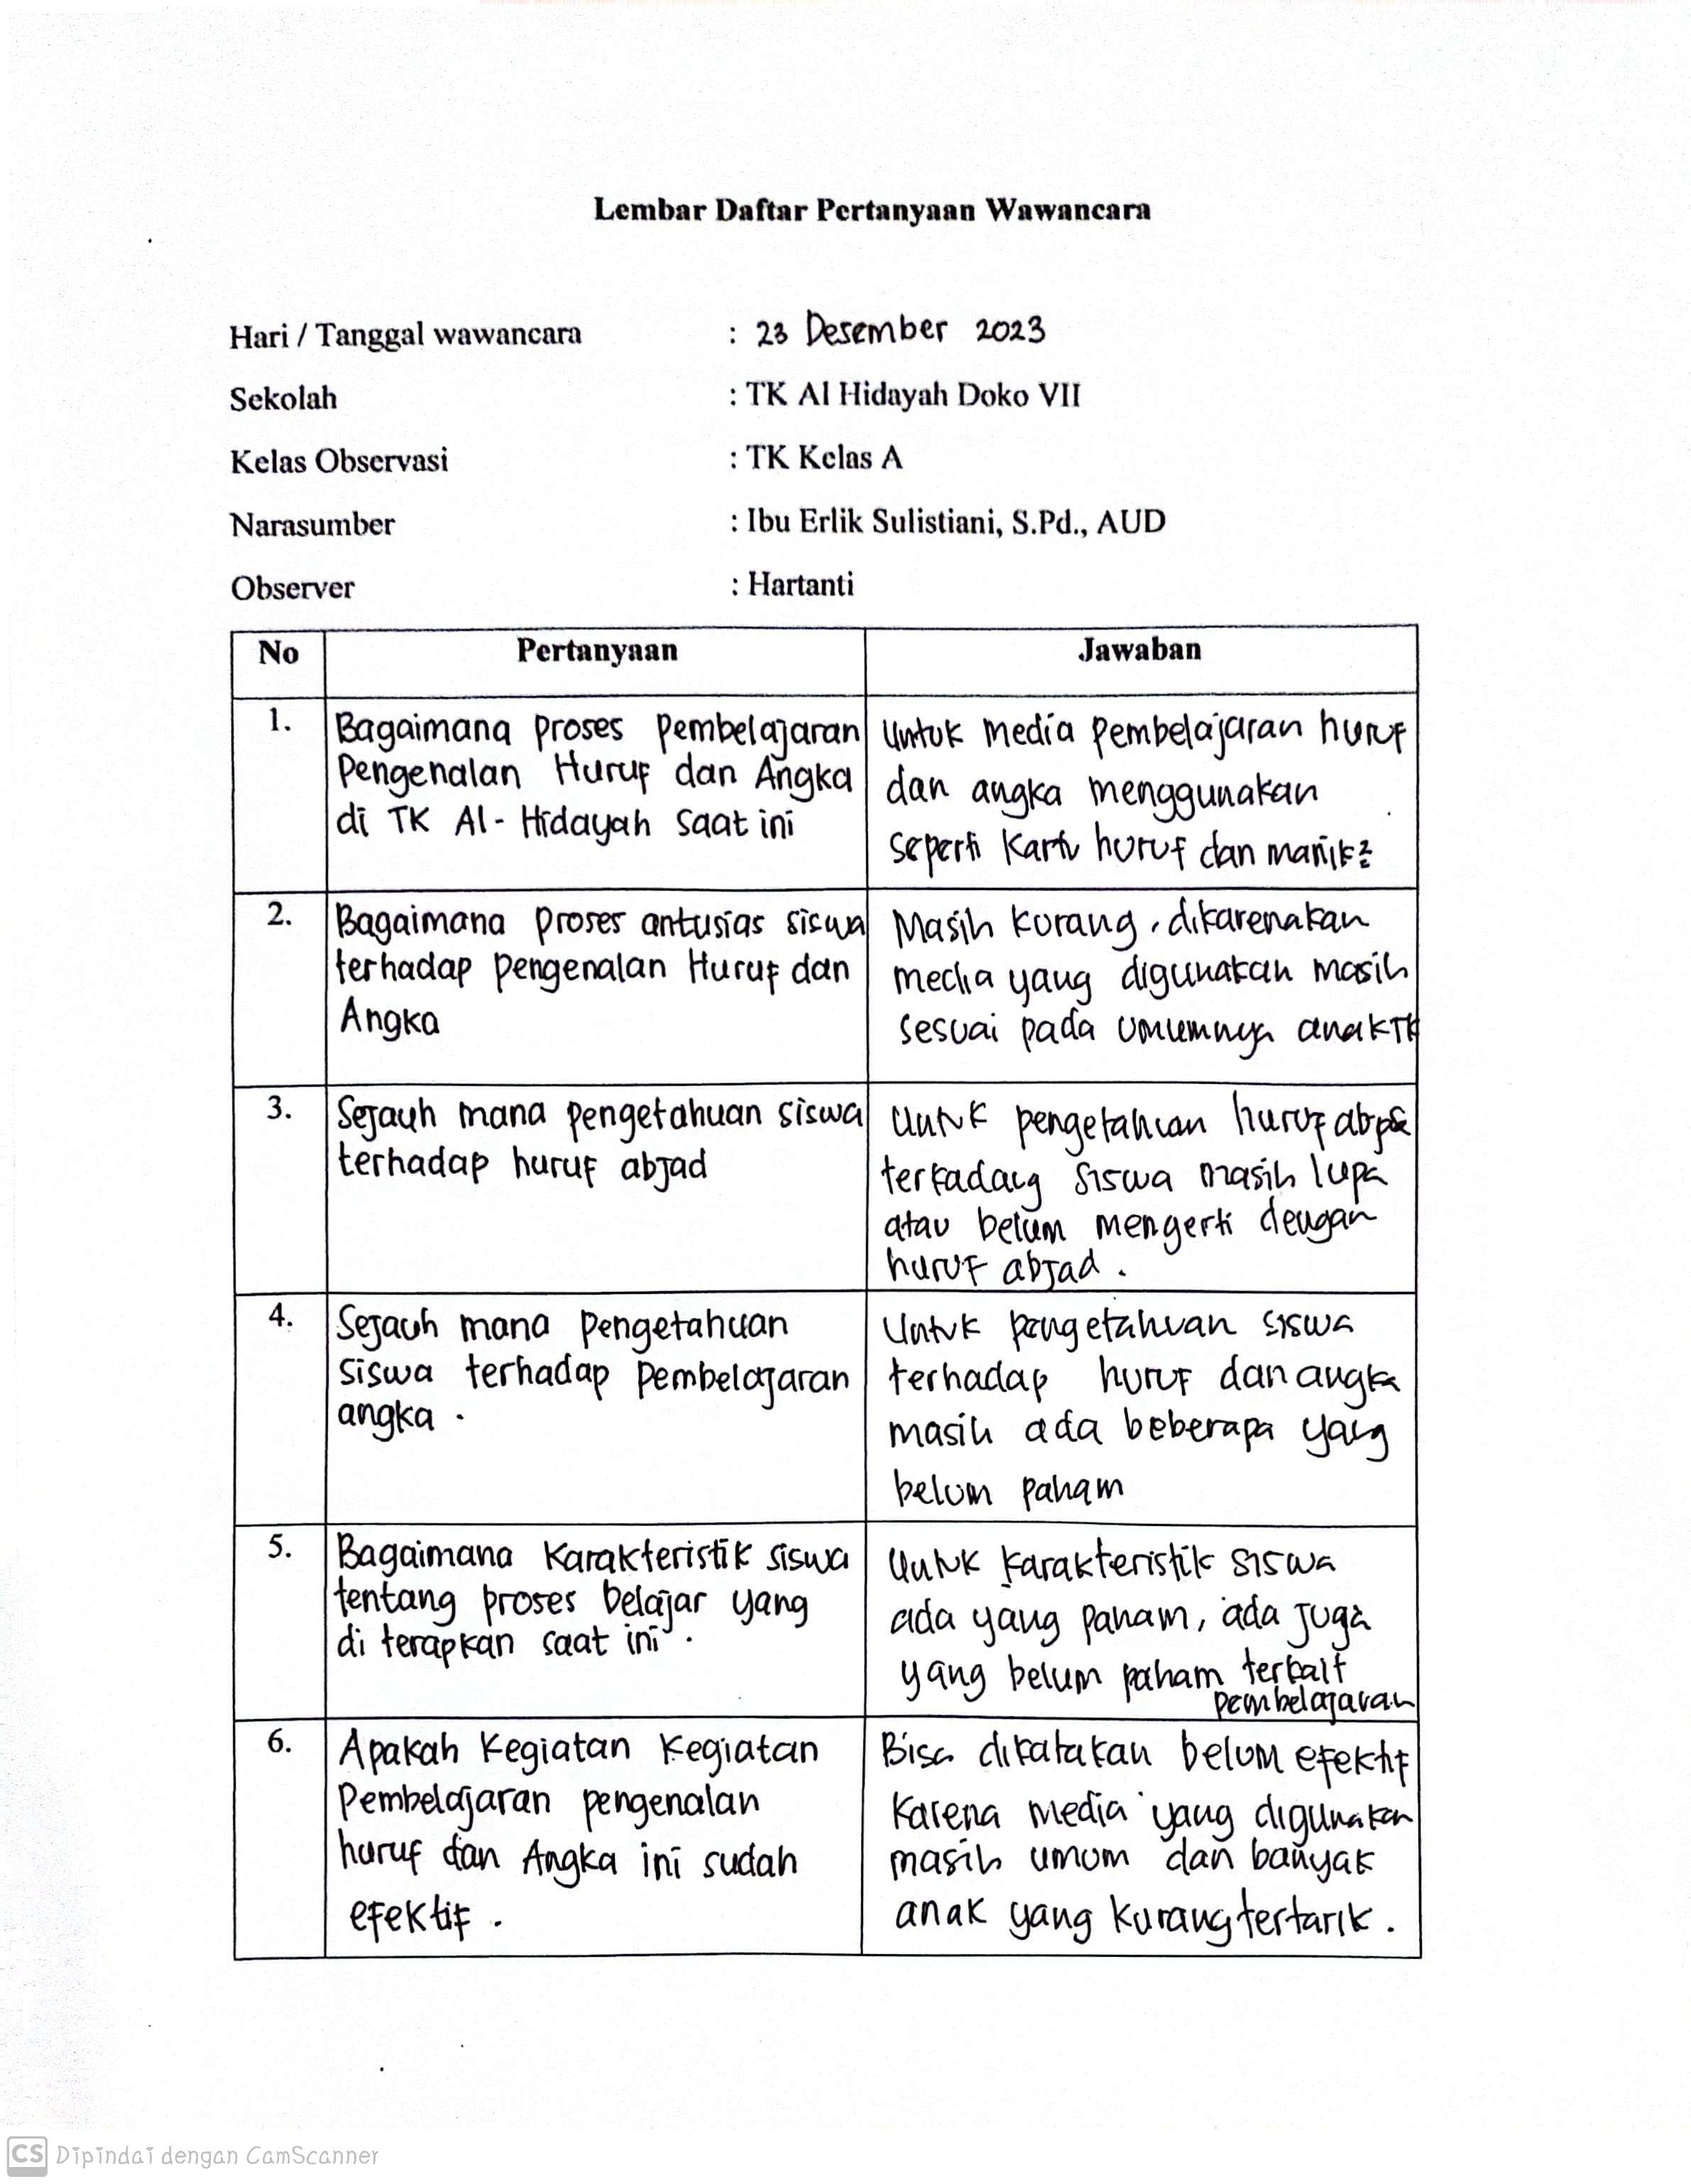 Lembar Daftar Pertanyaan Wawancara
Hari / Tanggal wawancara : 23 Desember 2023
Sekolah : TK Al Hidayah Doko VII
Kelas Observasi : TK Kelas A
Narasumber : Ibu Erlik Sulistiani, S.Pd., AUD
Observer : Hartanti
No Pertanyaan Jawaban
1.
Bagaimana proses pembelajaran
Pengenalan Huruf dan Angka
di TK Al-Hidayah saat ini
Untuk media pembelajaran huruf
dan angka menggunakan
seperti kartu huruf dan manik2
2.
Bagaimana proses antusias siswa
terhadap pengenalan Huruf dan
Angka
Masih kurang, dikarenakan
media yang digunakan masih
sesuai pada umumnya anak TK
3.
Sejauh mana pengetahuan siswa
terhadap huruf abjad
Untuk pengetahuan huruf
terkadang siswa masih lupa
atau belum mengerti dengan
huruf abjad.
4.
Sejauh mana pengetahuan
siswa terhadap Pembelajaran
angka.
Untuk pengetahuan siswa
terhadap huruf dan angka
masih ada beberapa yang
belum paham
5.
Bagaimana Karakteristik siswa
tentang proses belajar yang
di terapkan saat ini.
Untuk karakteristik siswa
ada yang paham, ada juga
yang belum paham terkait
pembelajaran
6.
Apakah Kegiatan Kegiatan
Pembelajaran pengenalan
huruf dan Angka ini sudah
efektif.
Bisa dikatakan belum efektif
Karena media yang digunakan
masih umum dan banyak
anak yang kurang tertarik.
CS Dipindai dengan CamScanner